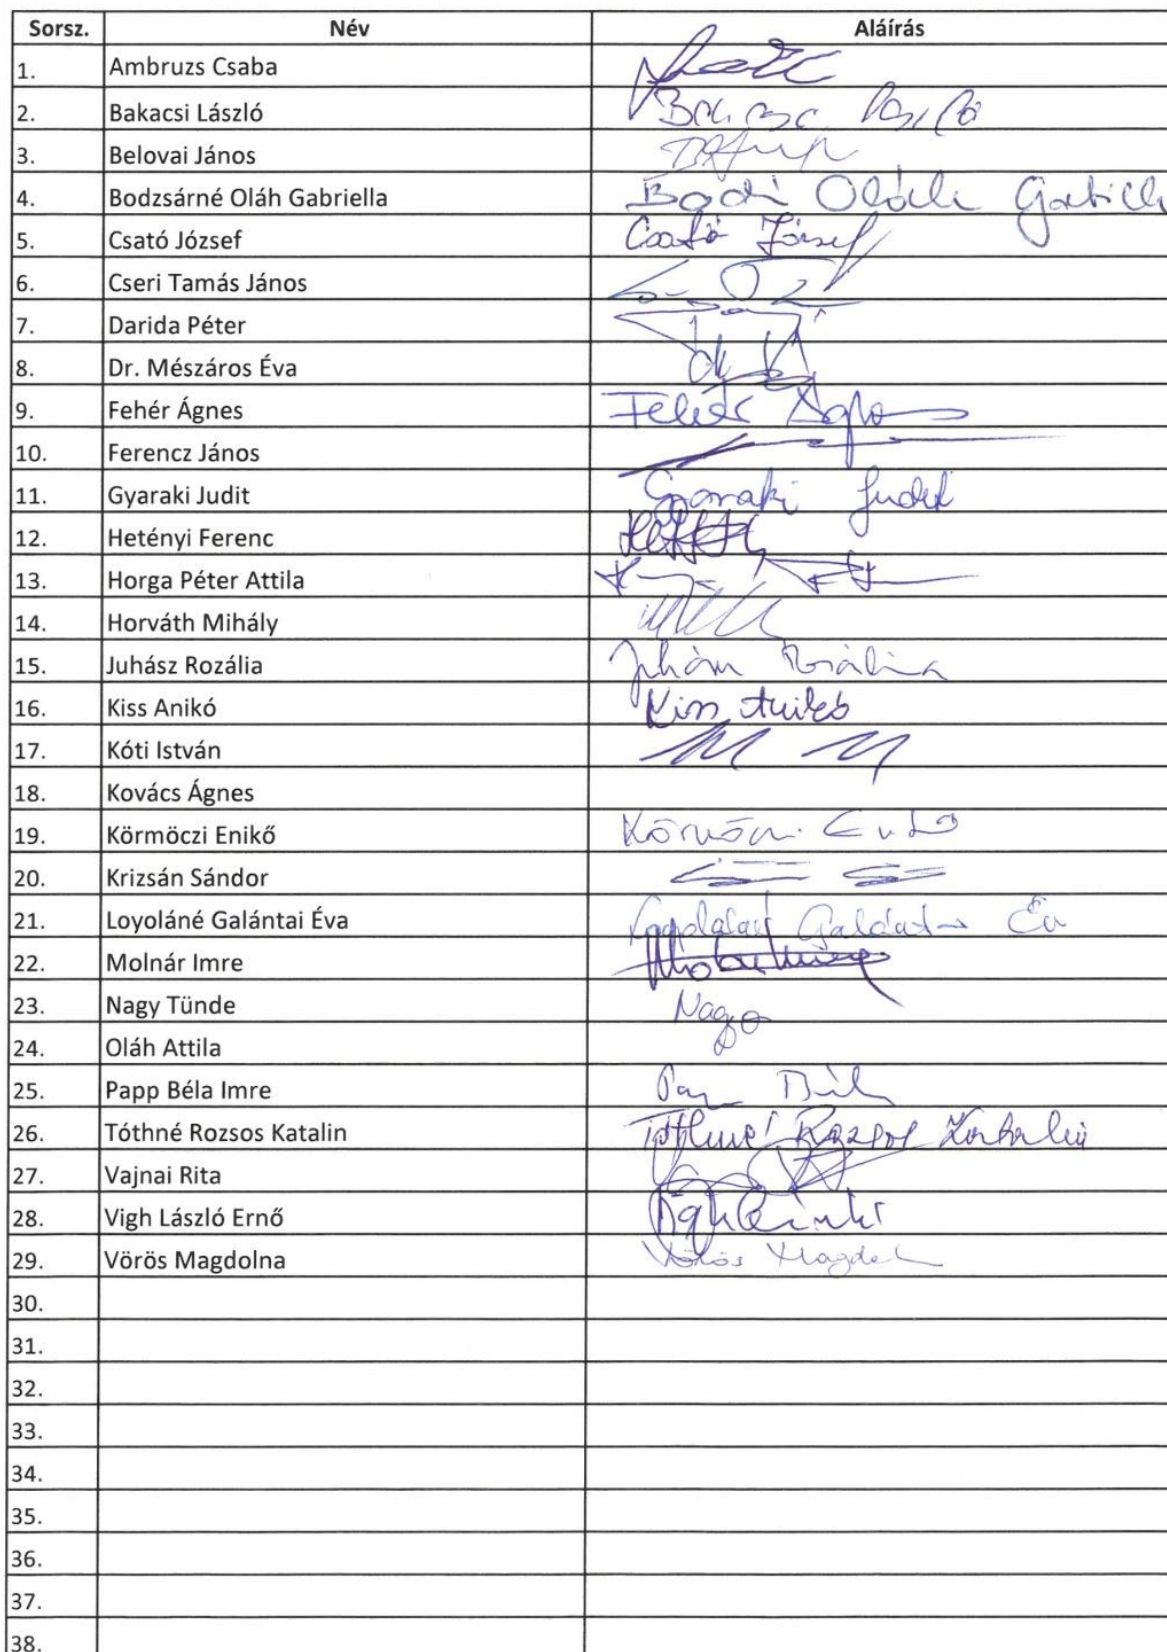 Sorsz. Név Aláírás
1. Ambruzs Csaba
2. Bakacsi László
3. Belovai János
4. Bodzsárné Oláh Gabriella Oláh
5. Csató József Csató József
6. Cseri Tamás János
7. Darida Péter
8. Dr. Mészáros Éva
9. Fehér Ágnes Fehér
10. Ferencz János
11. Gyaraki Judit Gyaraki Judit
12. Hetényi Ferenc
13. Horga Péter Attila
14. Horváth Mihály
15. Juhász Rozália Juhász Rozália
16. Kiss Anikó Kiss Anikó
17. Kóti István
18. Kovács Ágnes
19. Körmöczi Enikő
20. Krizsán Sándor
21. Loyoláné Galántai Éva
22. Molnár Imre Molnár Imre
23. Nagy Tünde Nagy
24. Oláh Attila
25. Papp Béla Imre
26. Tóthné Rozsos Katalin Tóthné Rozsos Katalin
27. Vajnai Rita
28. Vigh László Ernő
29. Vörös Magdolna Vörös
30.
31.
32.
33.
34.
35.
36.
37.
38.